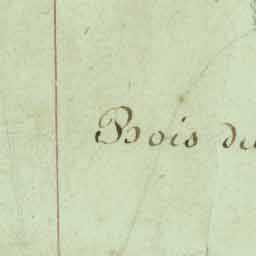 Bois du